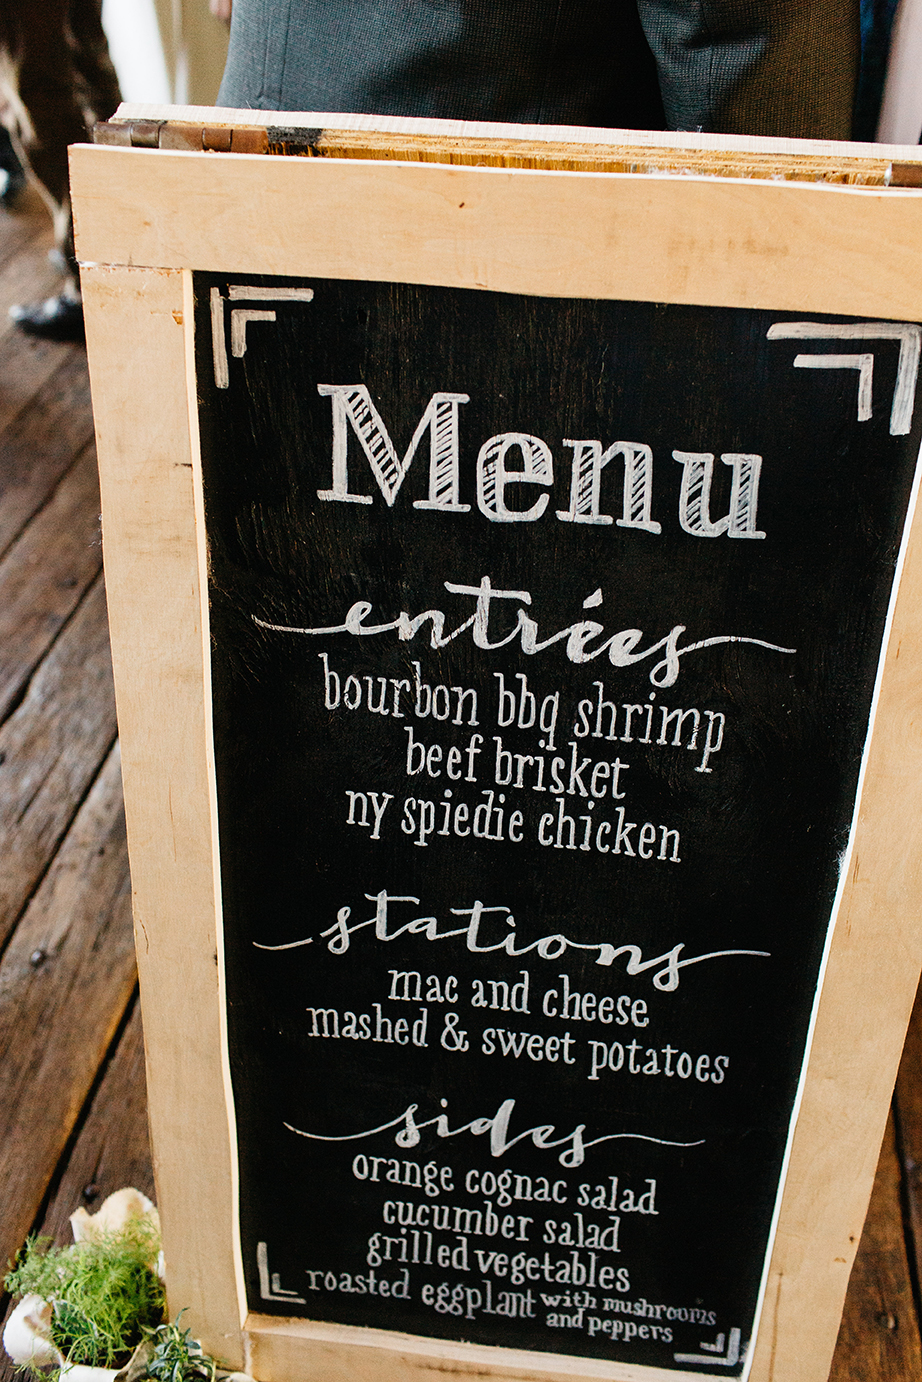 Menu
entrées
bourbon bbq shrimp
beef brisket
ny spiedie chicken
stations
mac and cheese
mashed & sweet potatoes
sides
orange cognac salad
cucumber salad
grilled vegetables
roasted eggplant with mushrooms
and peppers